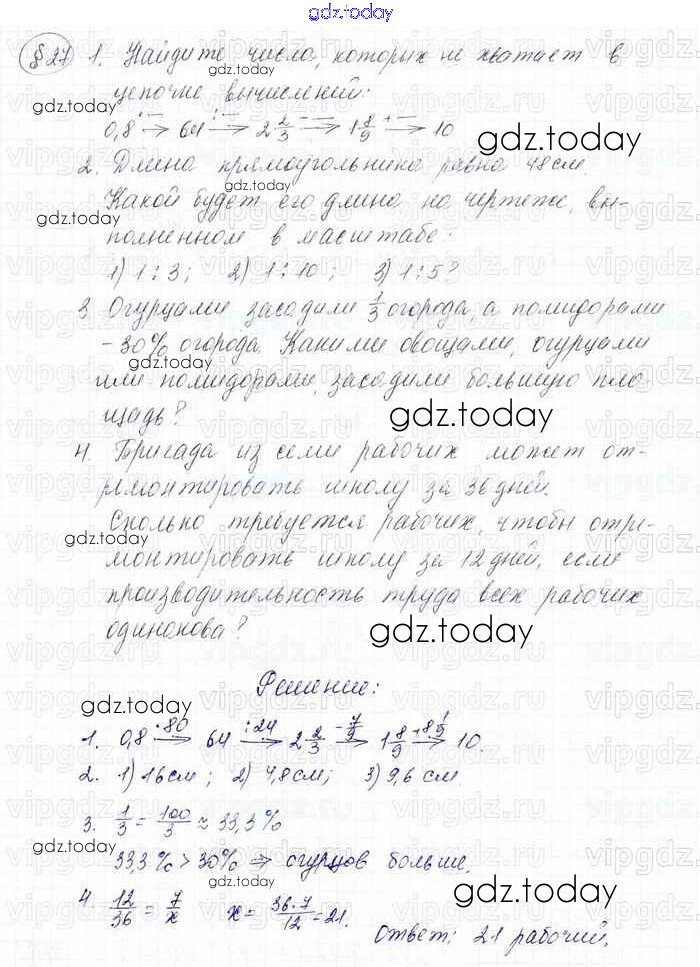 gdz.today
§27 1. Найдите числа, которых не хватает в
цепочке вычислений:
0,8 → 64 → 2 2/3 → 1 8/9 → 10
2. Длина прямоугольника равна 48 см.
Какой будет его длина на чертеже, вы-
полненном в масштабе:
1) 1:3; 2) 1:10; 3) 1:5?
3. Огурцами засадили 1/3 огорода, а помидорами
- 30% огорода. Какими овощами, огурцами
или помидорами, засадили большую пло-
щадь?
4. Бригада из семи рабочих может от-
ремонтировать школу за 36 дней.
Сколько требуется рабочих, чтобы отре-
монтировать школу за 12 дней, если
производительность труда всех рабочих
одинакова?
Решение:
1. 0,8 ·80→ 64 :24→ 2 2/3 -7/9→ 1 8/9 +8 1/9→ 10.
2. 1) 16 см; 2) 4,8 см; 3) 9,6 см
3. 1/3 = 100/3 ≈ 33,3%
33,3% > 30% ⇒ огурцов больше.
4. 12/36 = 7/x x = 36·7/12 = 21.
Ответ: 21 рабочий.